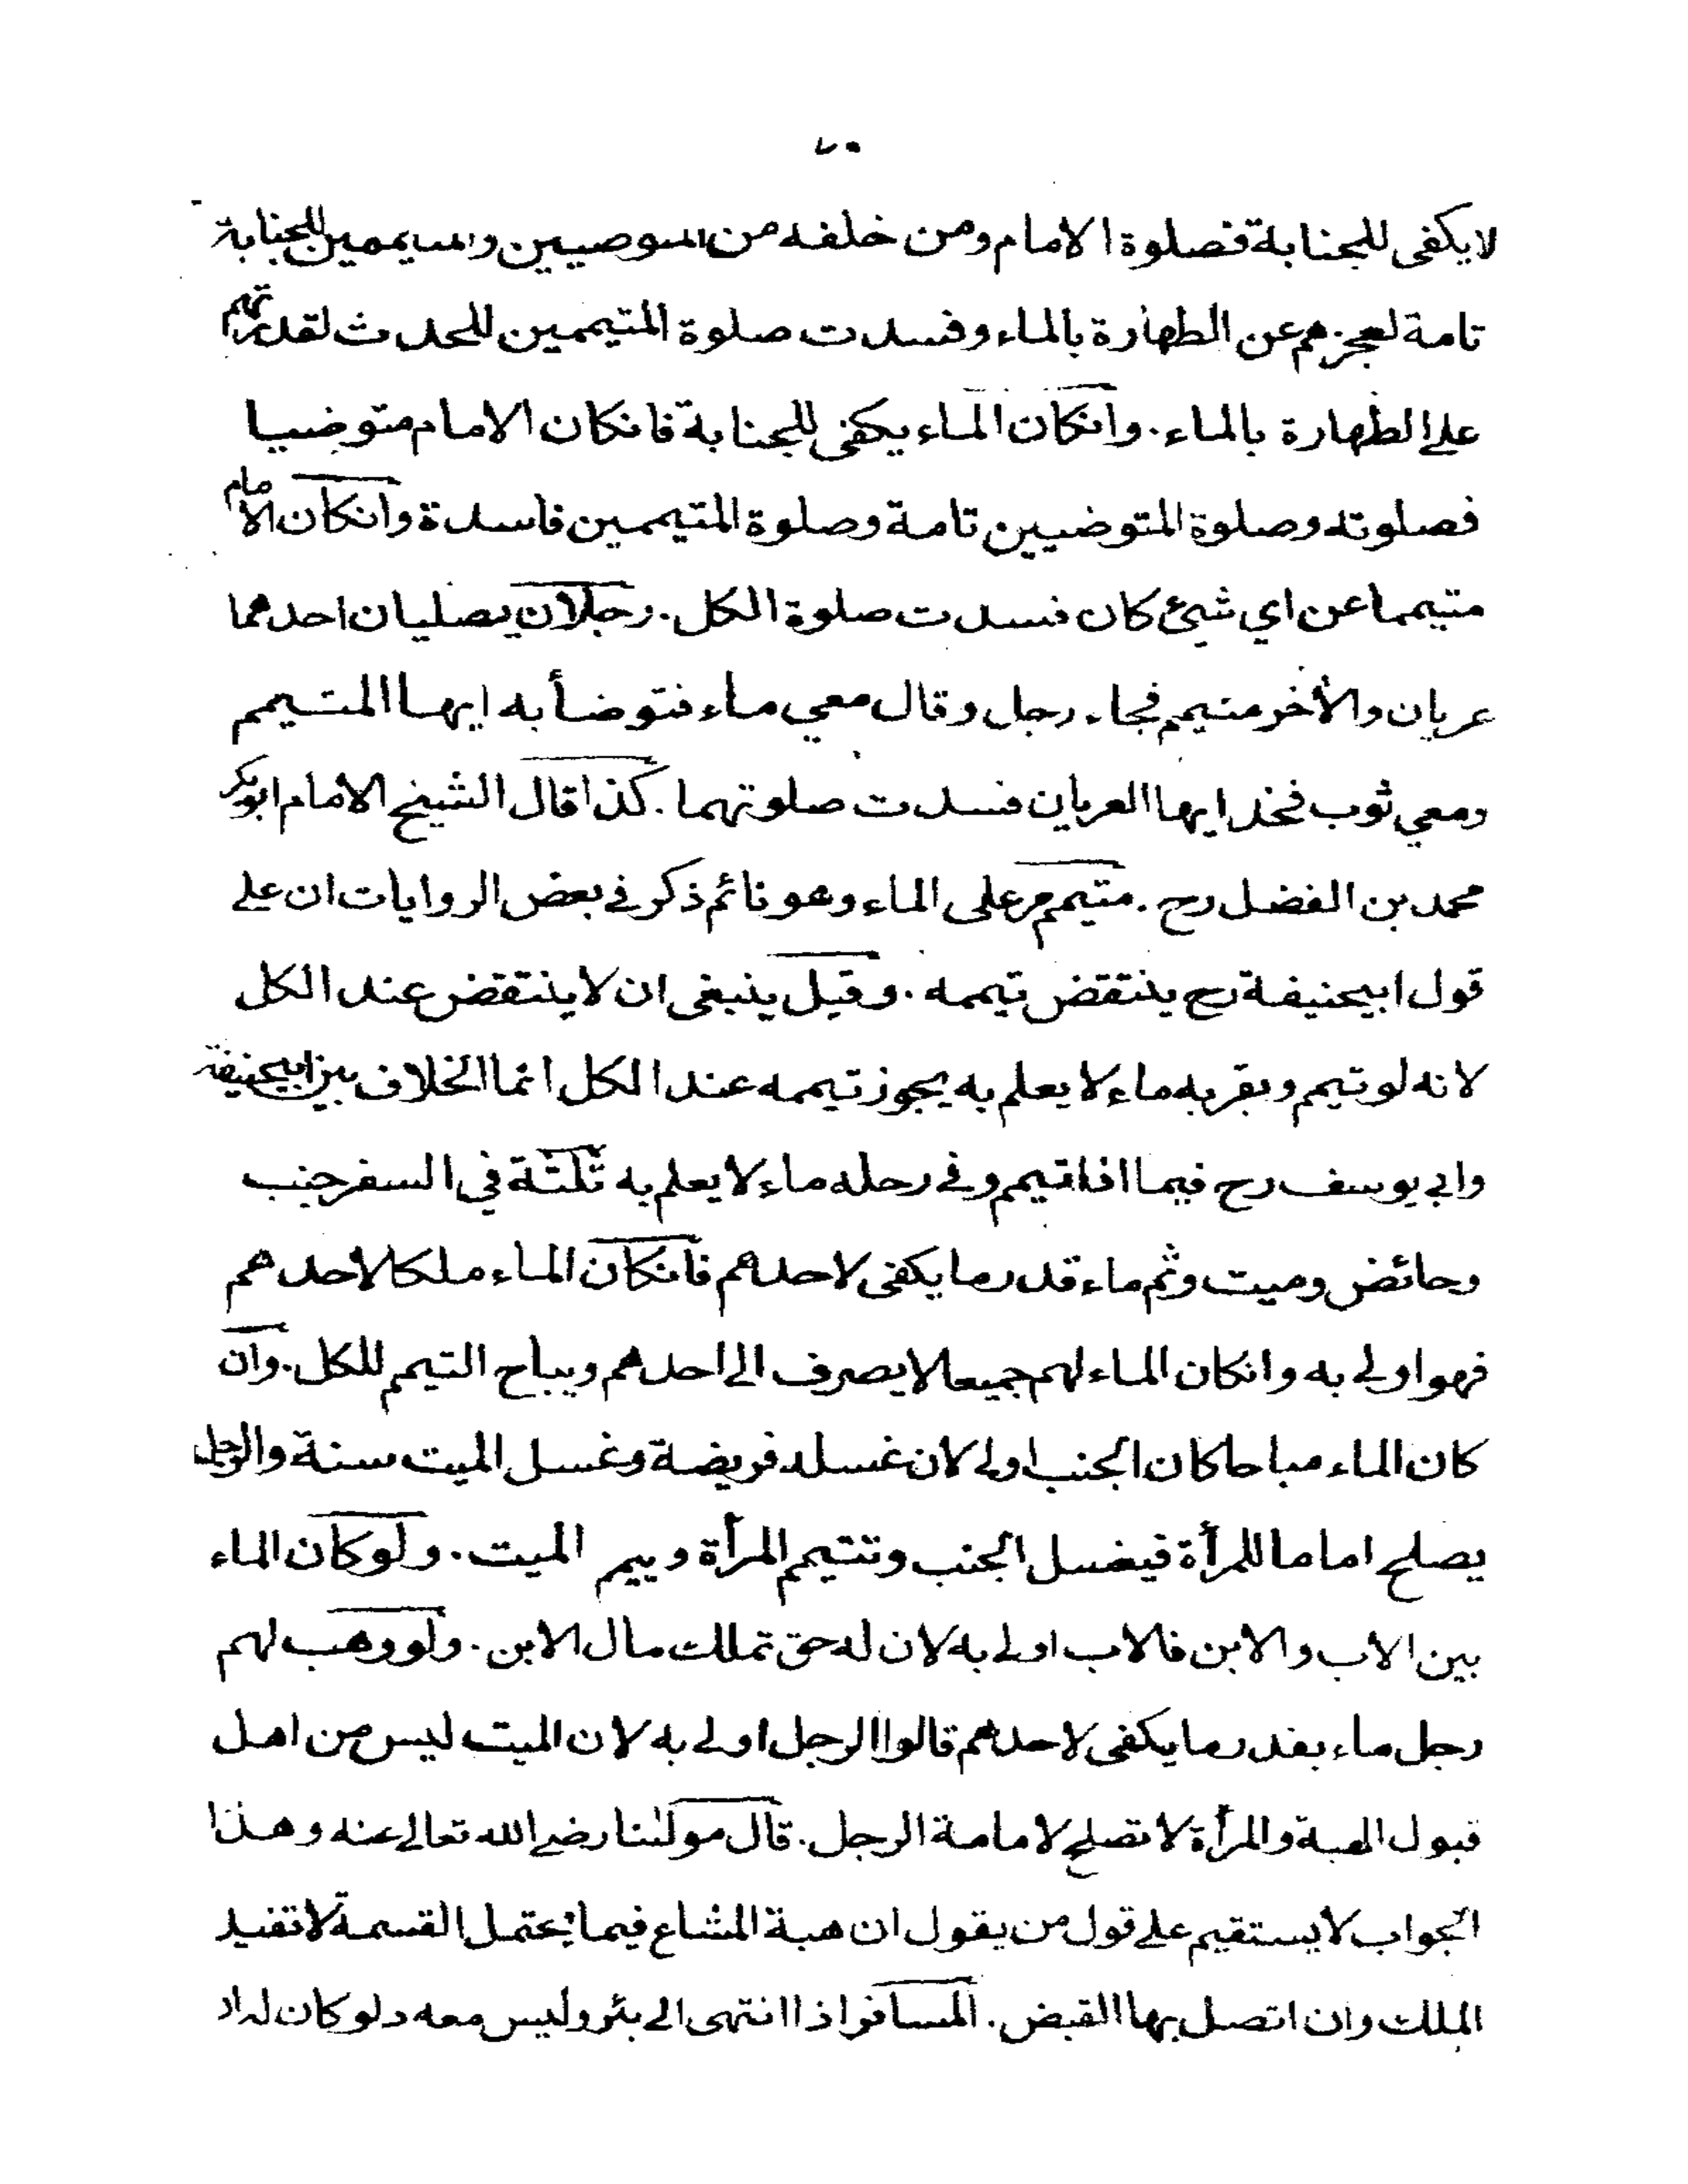 ٧٠
لايكفى للجنابة فصلوة الامام ومن خلفه من المتوضيين والمتيممين للجنابة
تامة لعجزهم عن الطهارة بالماء وفسدت صلوة المتيممين للحدث لقدرتهم
على الطهارة بالماء. وانكان الماء يكفى للجنابة فانكان الامام متوضيا
فصلوته وصلوة المتوضيين تامة وصلوة المتيممين فاسدة وانكان الامام
متيمما عن اي شيئ كان فسدت صلوة الكل. رجلان يصليان احدهما
عريان والأخر متيمم فجاء رجل وقال معي ماء فتوضأ به ايها المتيمم
ومعي ثوب فخذ ايها العريان فسدت صلوتهما. كذا قال الشيخ الامام ابوبكر
محمد بن الفضل رح. متيمم مر على الماء وهو نائم ذكر في بعض الروايات ان على
قول ابيحنيفة رح ينتقض تيممه. وقيل ينبغى ان لا ينتقض عند الكل
لانه لو تيمم وبقربه ماء لا يعلم به يجوز تيممه عند الكل انما الخلاف بين ابيحنيفة
وابي يوسف رح فيما اذا تيمم وفي رحله ماء لا يعلم به ثلثة في السفر جنب
وحائض وميت وثم ماء قدر ما يكفى لاحدهم فانكان الماء ملكا لاحدهم
فهو اولى به وانكان الماء لهم جميعا لا يصرف الى احدهم ويباح التيمم للكل. وان
كان الماء مباحا كان الجنب اولى لان غسله فريضة وغسل الميت سنة والرجل
يصلح اماما للمرأة فيغسل الجنب وتتيمم المرأة وييمم الميت. ولو كان الماء
بين الاب والابن فالاب اولى به لان له حق تملك مال الابن. ولو وهب لهم
رجل ماء بقدر ما يكفى لاحدهم قالوا الرجل اولى به لان الميت ليس من اهل
قبول الهبة والمرأة لا تصلح لامامة الرجل. قال مولٰنا رضى الله تعالى عنه وهذا
الجواب لا يستقيم على قول من يقول ان هبة المشاع فيما يحتمل القسمة لا تفيد
الملك وان اتصل بها القبض. المسافر اذا انتهى الى بئر وليس معه دلو كان له ان